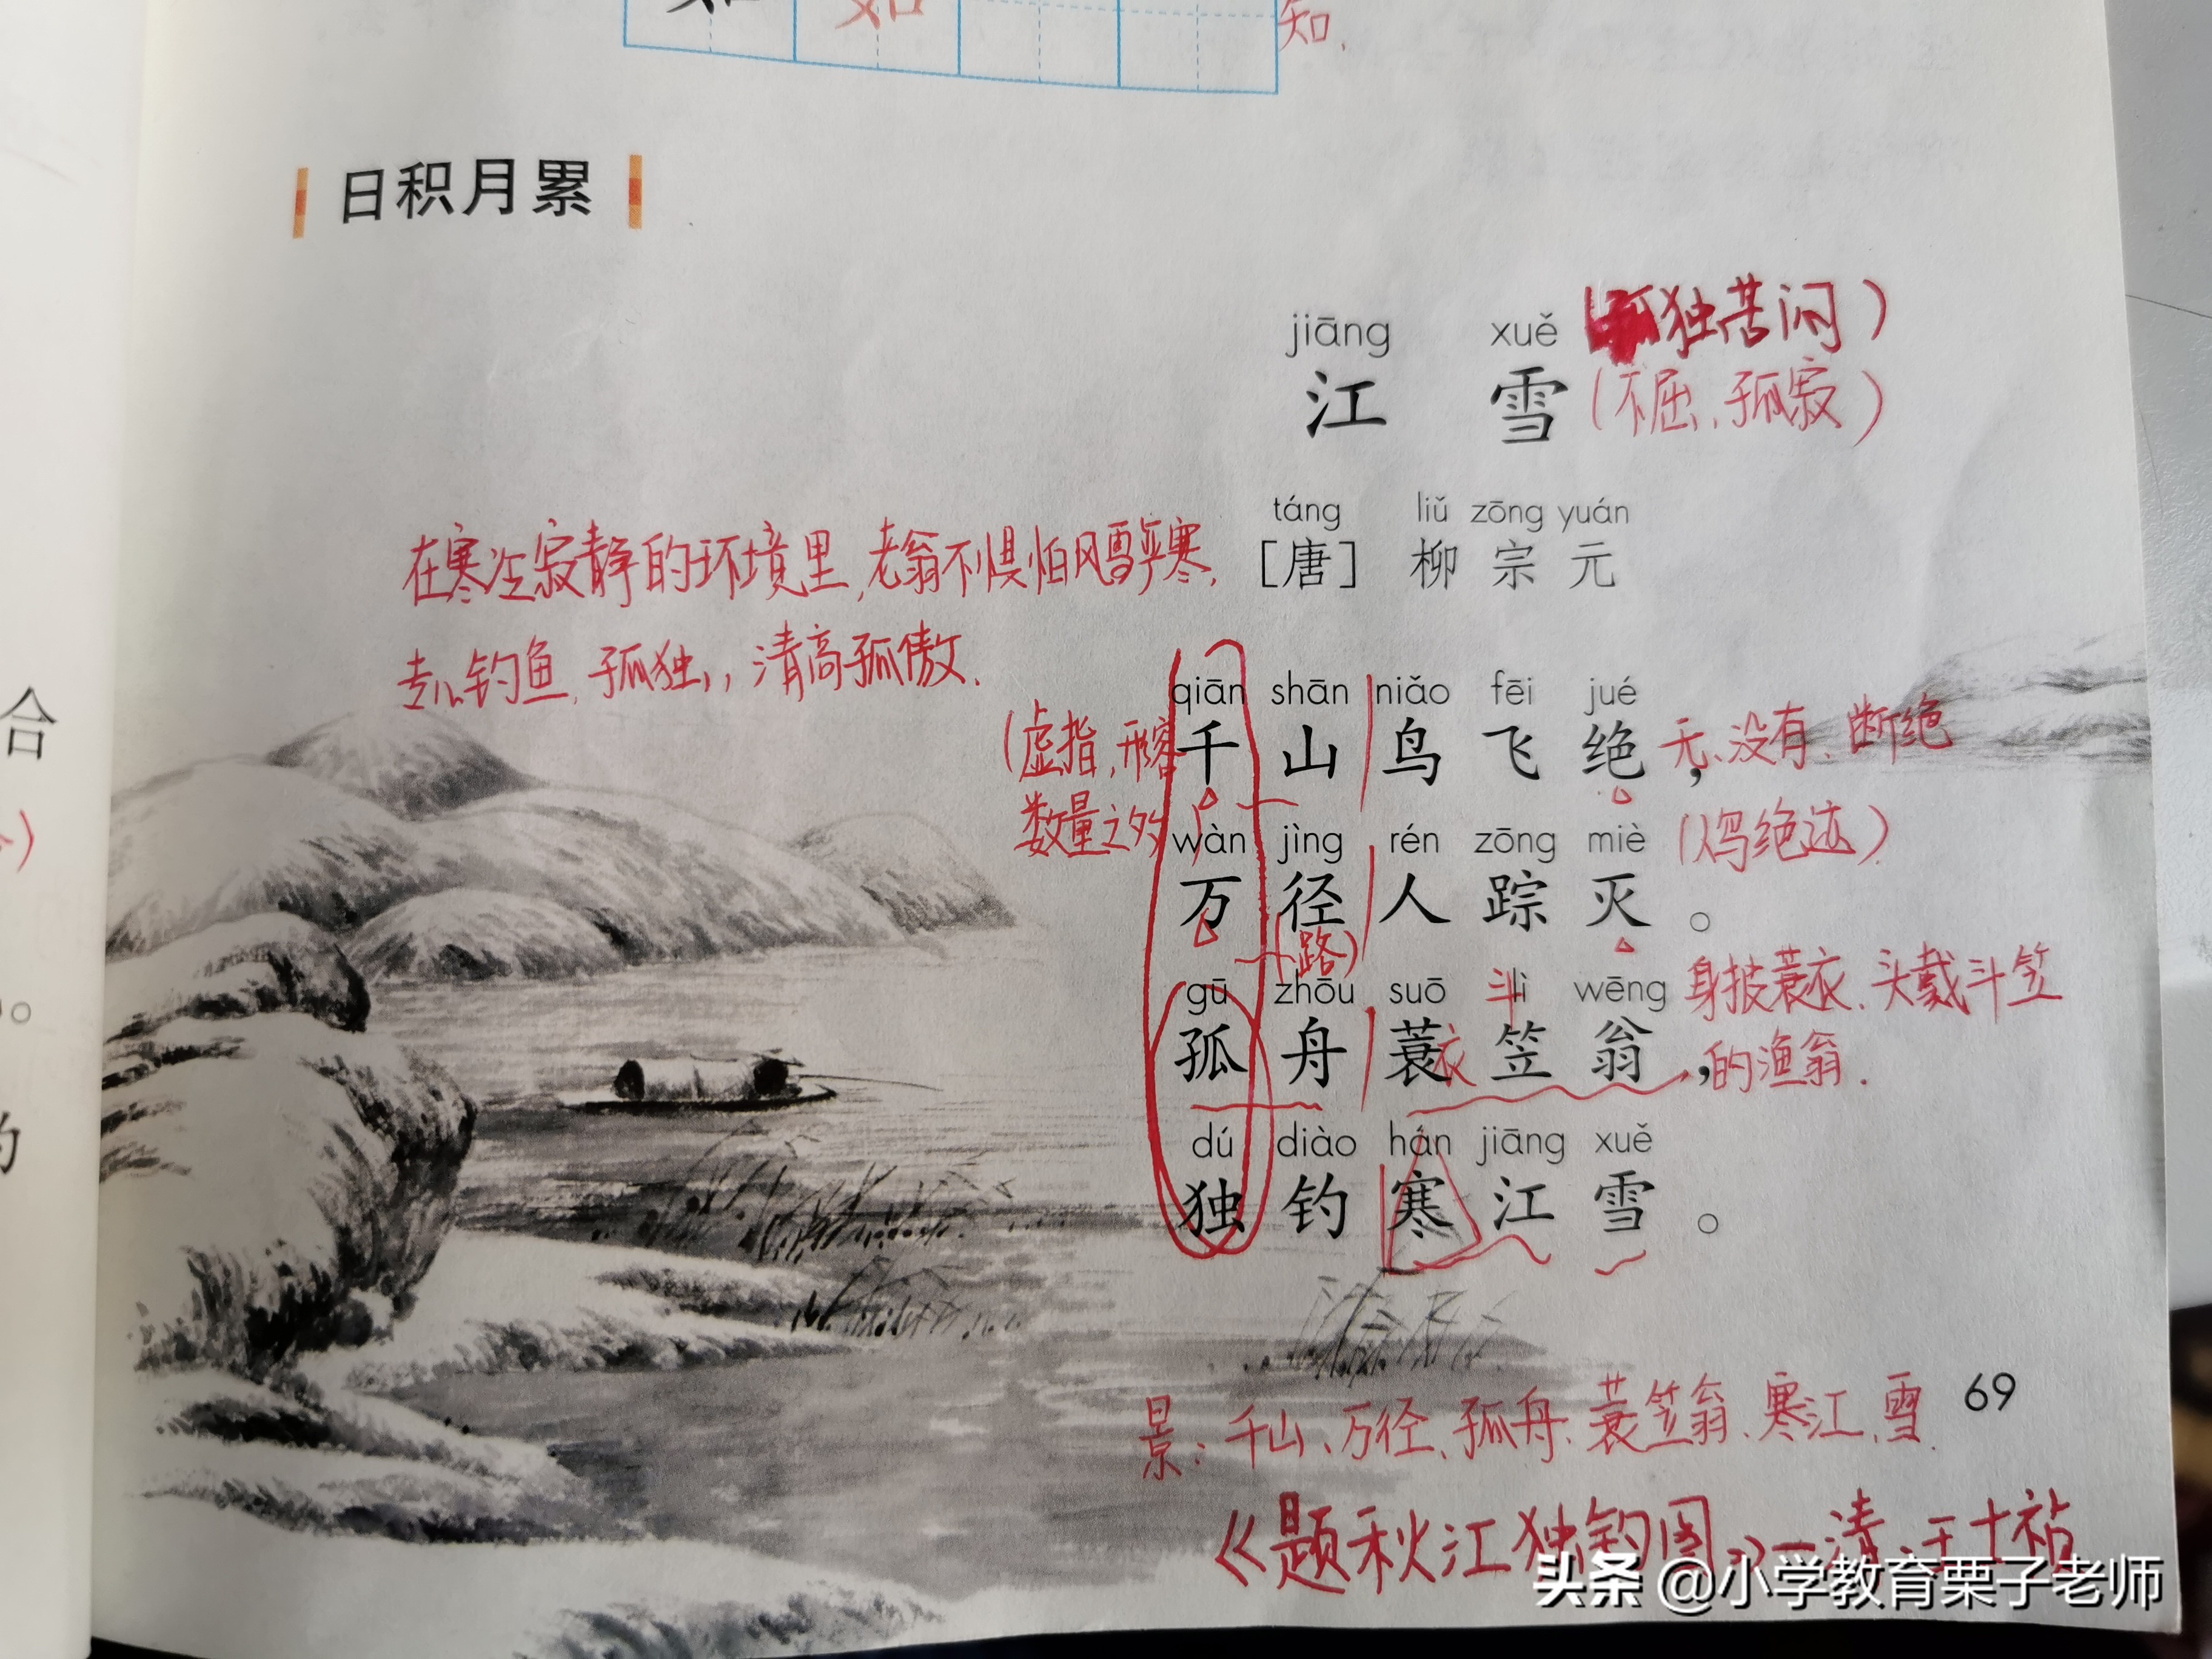 知.
日积月累
jiāng xuě
(孤独苦闷)
江 雪
(不屈、孤寂)
táng liǔ zōng yuán
[唐] 柳 宗 元
在寒冷寂静的环境里,老翁不惧怕风雪严寒,
专心钓鱼,孤独,,清高孤傲.
qiān shān niǎo fēi jué
千 山 鸟 飞 绝 ,
无、没有、断绝
(虚指,形容
数量之多)
wàn jìng rén zōng miè
(鸟绝迹)
万 径 人 踪 灭 。
(路)
gū zhōu suō lì wēng
斗
孤 舟 蓑 笠 翁 ,
衣
身披蓑衣、头戴斗笠
的渔翁.
dú diào hán jiāng xuě
独 钓 寒 江 雪 。
合
的
69
景:千山、万径、孤舟、蓑笠翁、寒江、雪.
《题秋江独钓图》—清.王士祯
头条 @小学教育栗子老师